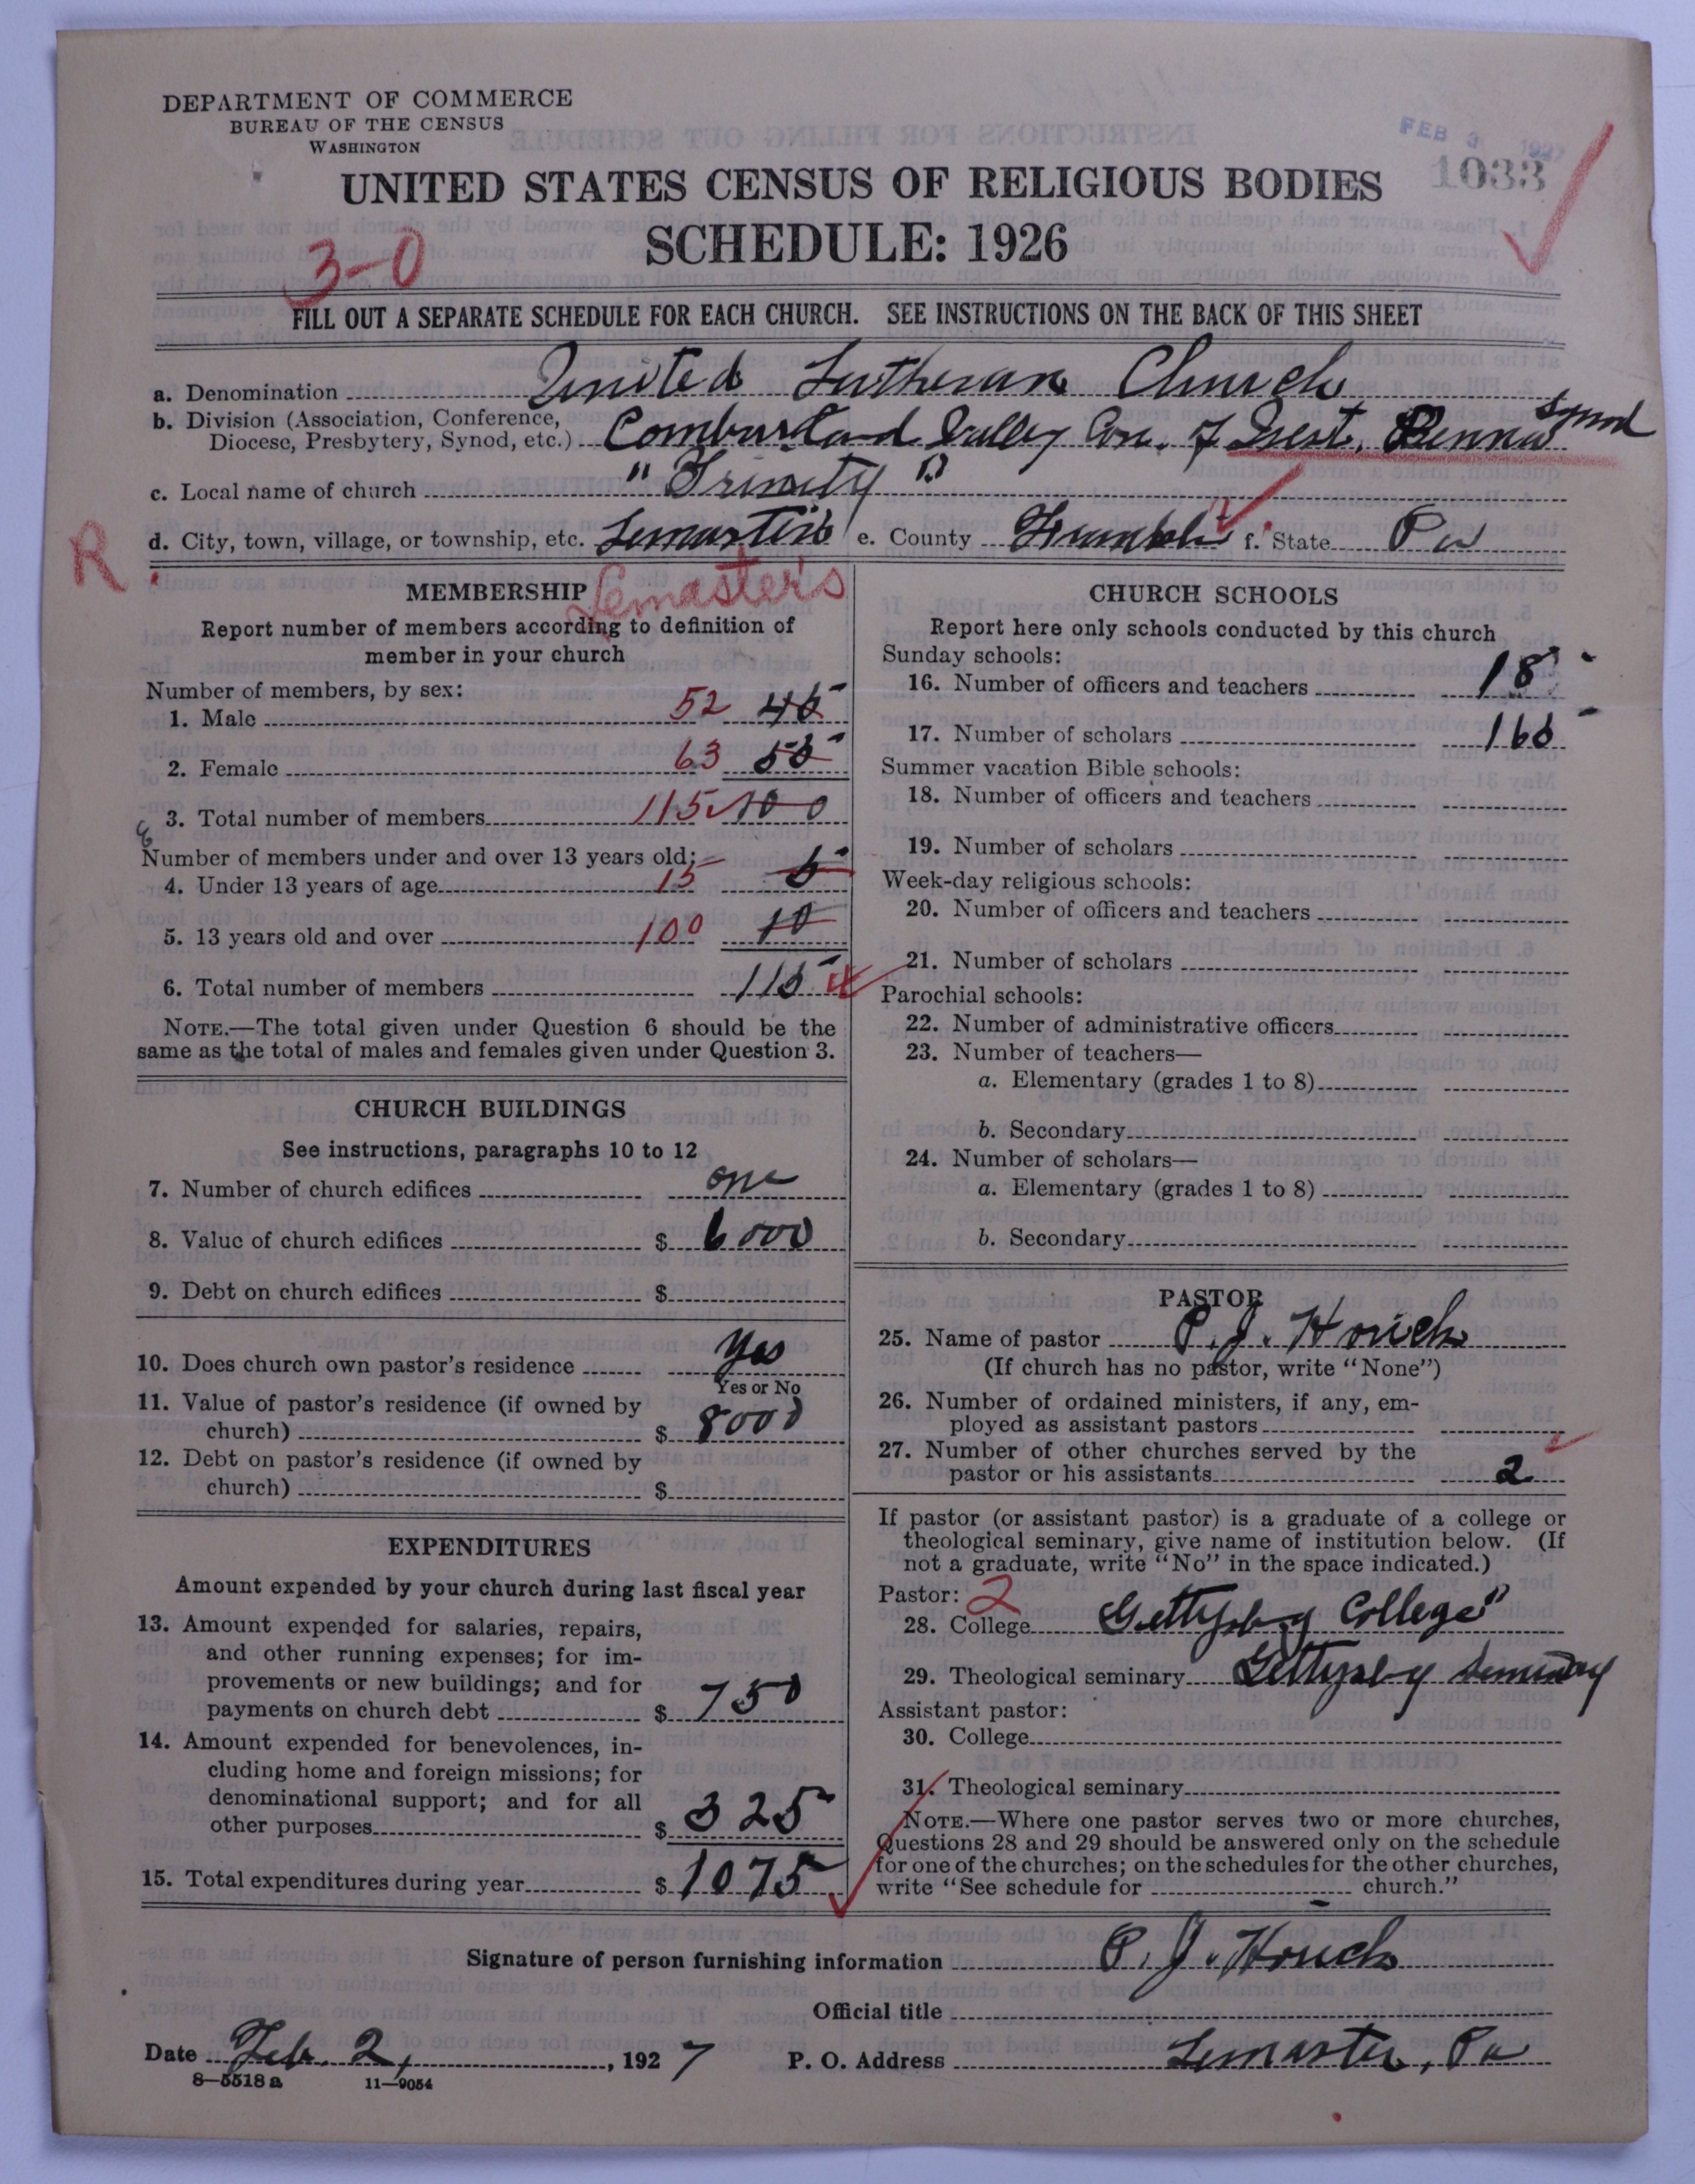 DEPARTMENT OF COMMERCE
BUREAU OF THE CENSUS
WASHINGTON
FEB 3 1927
1033
UNITED STATES CENSUS OF RELIGIOUS BODIES
SCHEDULE: 1926
3-0
FILL OUT A SEPARATE SCHEDULE FOR EACH CHURCH. SEE INSTRUCTIONS ON THE BACK OF THIS SHEET
a. Denomination United Lutheran Church
b. Division (Association, Conference, Diocese, Presbytery, Synod, etc.) Valley Con. of West. Penna Synod
c. Local name of church "Trinity"
R
d. City, town, village, or township, etc. Lemasters e. County Franklin f. State Pa
Lemaster's
MEMBERSHIP
Report number of members according to definition of
member in your church
Number of members, by sex:
1. Male 52 45
2. Female 63 55
3. Total number of members 115 100
Number of members under and over 13 years old:
4. Under 13 years of age 15 5
5. 13 years old and over 100 10
6. Total number of members 115
NOTE.—The total given under Question 6 should be the
same as the total of males and females given under Question 3.
CHURCH BUILDINGS
See instructions, paragraphs 10 to 12
7. Number of church edifices one
8. Value of church edifices $ 6000
9. Debt on church edifices $
10. Does church own pastor's residence Yes
Yes or No
11. Value of pastor's residence (if owned by
church) $ 8000
12. Debt on pastor's residence (if owned by
church) $
EXPENDITURES
Amount expended by your church during last fiscal year
13. Amount expended for salaries, repairs,
and other running expenses; for im-
provements or new buildings; and for
payments on church debt $ 750
14. Amount expended for benevolences, in-
cluding home and foreign missions; for
denominational support; and for all
other purposes $ 325
15. Total expenditures during year $ 1075
CHURCH SCHOOLS
Report here only schools conducted by this church
Sunday schools:
16. Number of officers and teachers 18
17. Number of scholars 165
Summer vacation Bible schools:
18. Number of officers and teachers
19. Number of scholars
Week-day religious schools:
20. Number of officers and teachers
21. Number of scholars
Parochial schools:
22. Number of administrative officers
23. Number of teachers—
a. Elementary (grades 1 to 8)
b. Secondary
24. Number of scholars—
a. Elementary (grades 1 to 8)
b. Secondary
PASTOR
25. Name of pastor P. J. Houck
(If church has no pastor, write "None")
26. Number of ordained ministers, if any, em-
ployed as assistant pastors
27. Number of other churches served by the
pastor or his assistants 2
If pastor (or assistant pastor) is a graduate of a college or
theological seminary, give name of institution below. (If
not a graduate, write "No" in the space indicated.)
Pastor: 2
28. College Gettysburg College"
29. Theological seminary Gettysburg Seminary
Assistant pastor:
30. College
31. Theological seminary
NOTE.—Where one pastor serves two or more churches,
Questions 28 and 29 should be answered only on the schedule
for one of the churches; on the schedules for the other churches,
write "See schedule for church."
Signature of person furnishing information P. J. Houck
Official title
Date Feb. 2, 1927 P. O. Address Lemaster, Pa
8—5518 a 11—9054